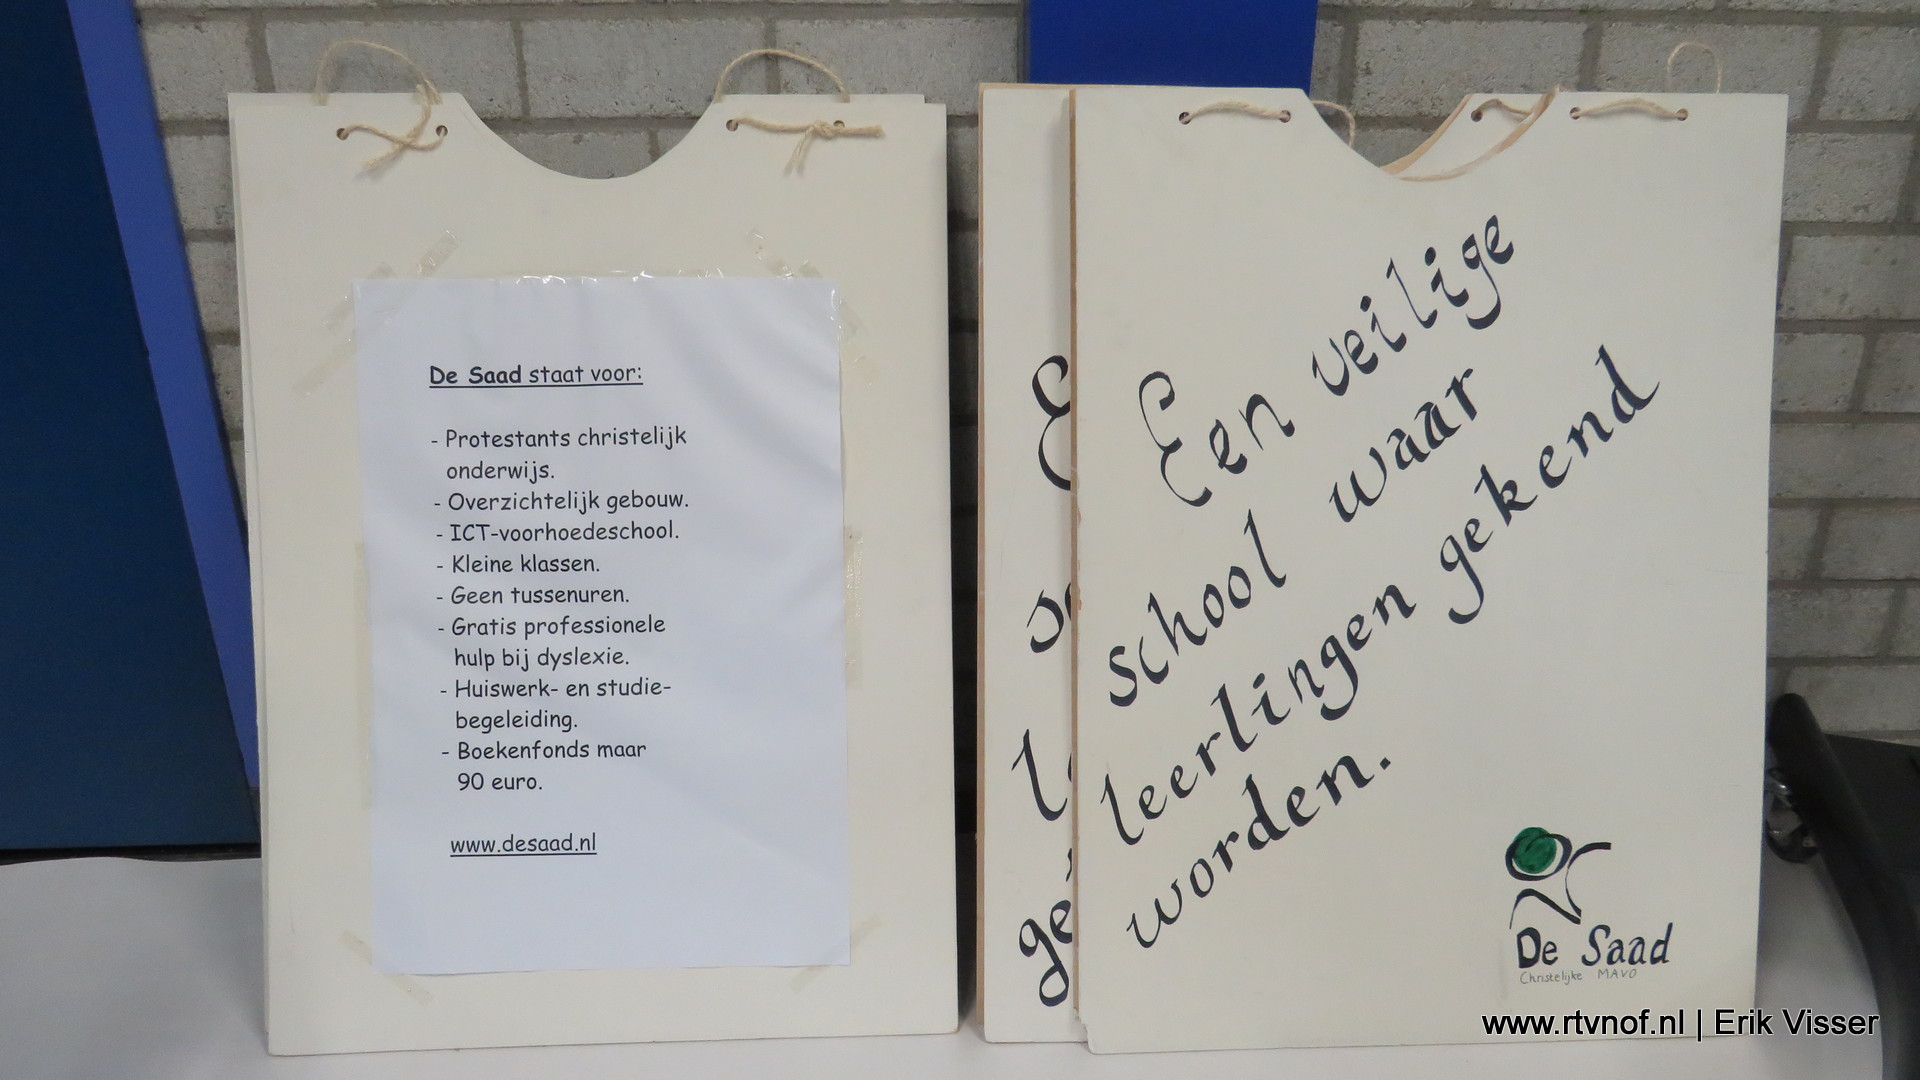 De Saad staat voor:
- Protestants christelijk
onderwijs.
- Overzichtelijk gebouw.
- ICT-voorhoedeschool.
- Kleine klassen.
- Geen tussenuren.
- Gratis professionele
hulp bij dyslexie.
- Huiswerk- en studie-
begeleiding.
- Boekenfonds maar
90 euro.
www.desaad.nl
Een veilige
school waar
leerlingen gekend
worden.
De Saad
Christelijke MAVO
www.rtvnof.nl | Erik Visser